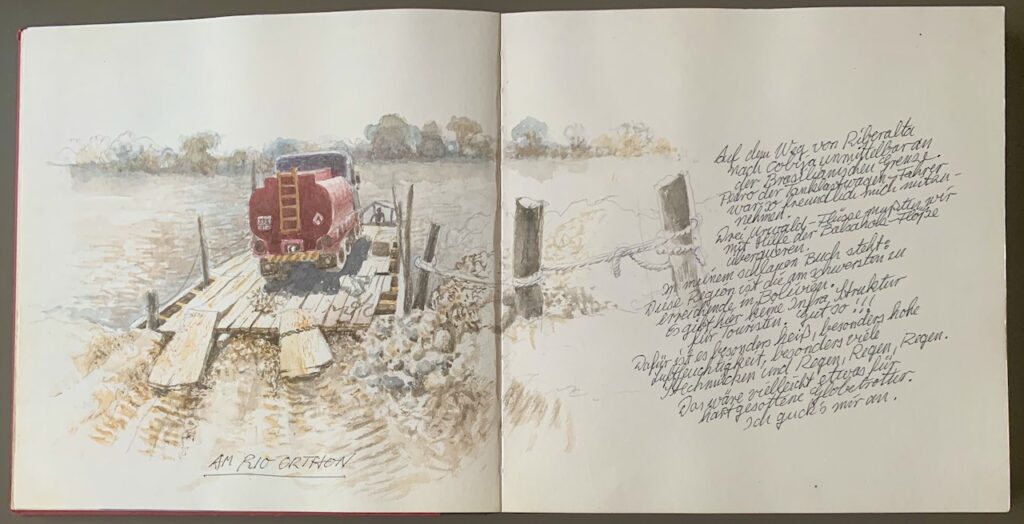 AM RIO ORTHON
Auf dem Weg von Riberalta
nach Cobija unmittelbar an
der Brasilianischen Grenze.
Pedro der Tanklastwagen-Fahrer
war so freundlich mich mitzu-
nehmen.
Drei Urwald-Flüsse mussten wir
mit Hilfe der Balsaholz-Flöße
überqueren.
In meinem schlauen Buch steht:
Diese Region ist die am schwersten zu
erreichende in Bolivien.
Es gibt hier keine Infra, Struktur
für Touristen. Gut so!!!
Dafür ist es besonders heiß, besonders hohe
Luftfeuchtigkeit, besonders viele
Stechmücken und Regen, Regen, Regen.
Das wäre vielleicht etwas für
hart gesottene Globetrotter.
Ich guck's mir an.